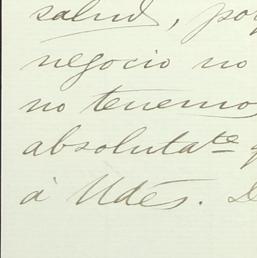 salud, por
negocio no
no tenemos
absolutate
à Udés.